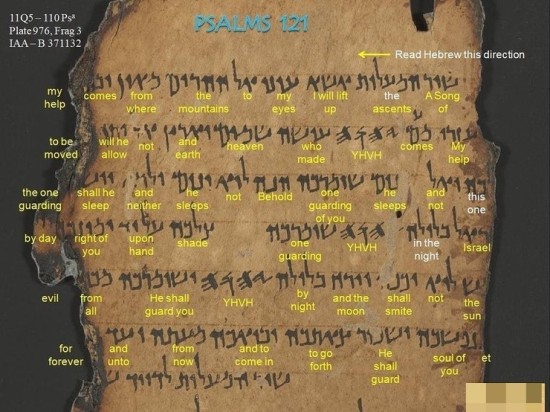 11Q5 – 110 Psᵃ
Plate 976, Frag 3
IAA – B 371132
PSALMS 121
Read Hebrew this direction
שיר המעלות אשא עיני אל ההרים מאין
my help comes from where the mountains to my eyes I will lift up the ascents A Song of
עושה שמים וארץ
to be moved will he allow not and earth heaven who made YHVH comes My help
ינום שומרכה הנה לוא ינום
the one guarding shall he sleep and neither he sleeps not Behold one guarding of you he sleeps and not this one
בלילה שומרכה
by day right of you upon hand shade one guarding YHVH in the night Israel
וירח בלילה
evil from all He shall guard you YHVH by night and the moon shall smite not the sun
ועד
for forever and unto from now and to come in to go forth He shall guard soul of you et
שיר המעלות לדויד